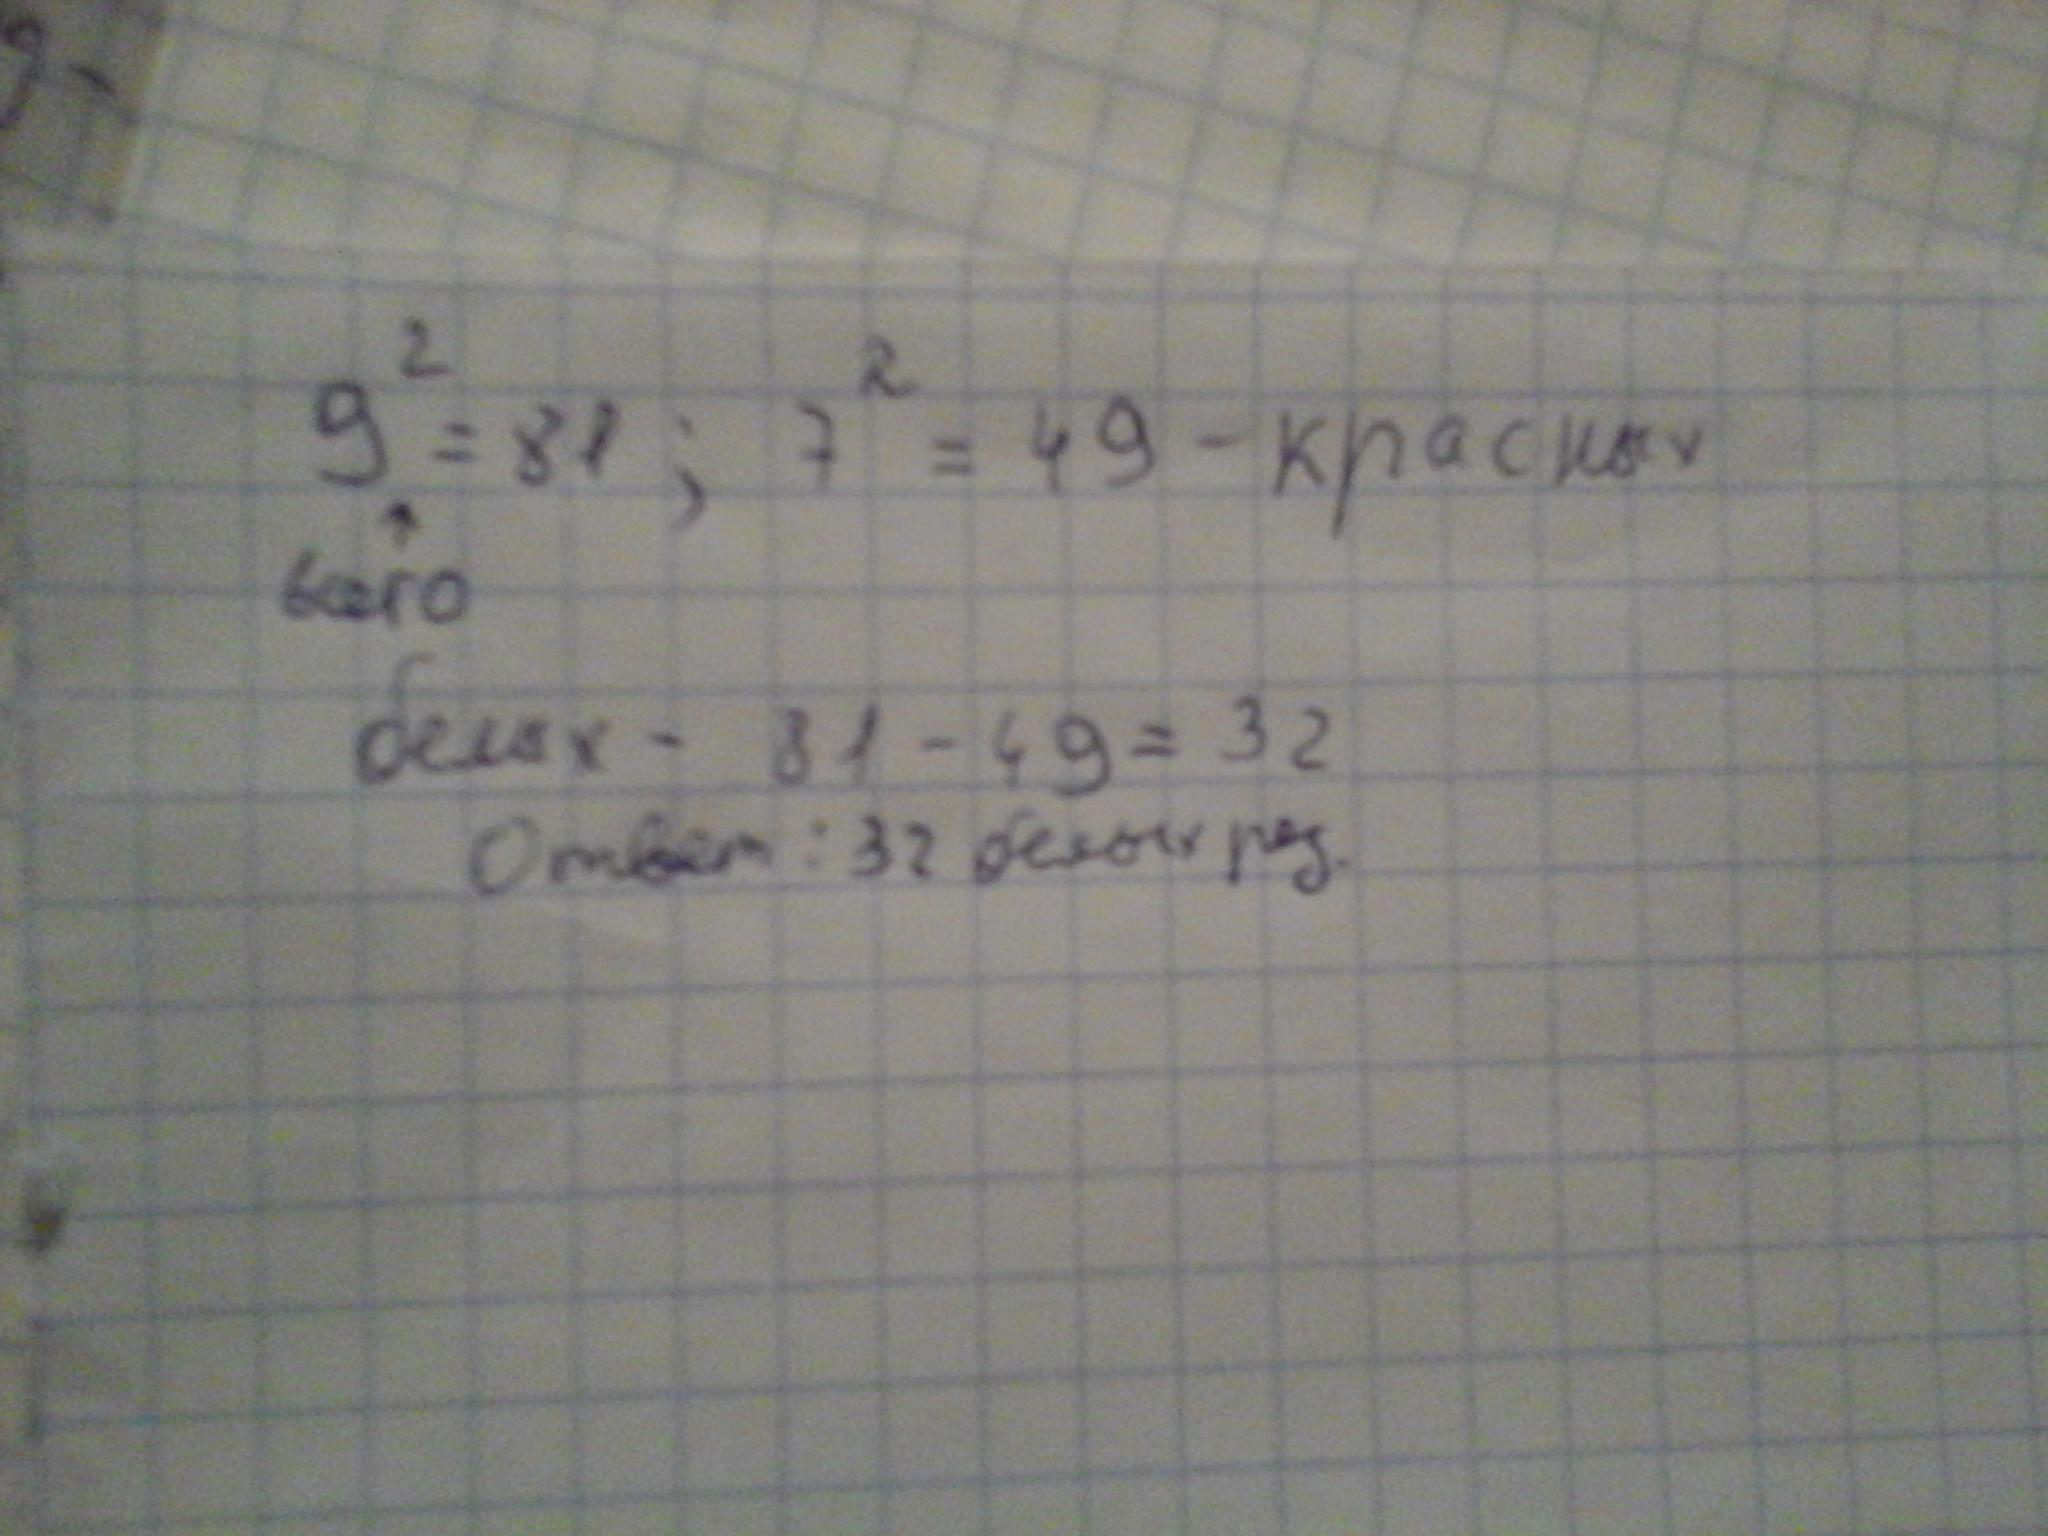 9² = 81 ; 7² = 49 - красных
↑
всего
белых - 81 - 49 = 32
Ответ : 32 белых роз.